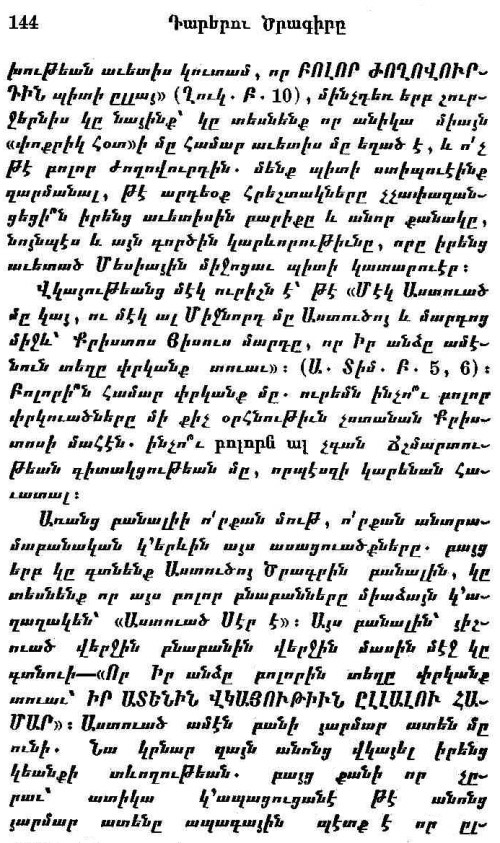 144 Դարերու Ծրագիրը
խութեան աւետիս կուտամ, որ ԲՈԼՈՐ ԺՈՂՈՎՈՒՐ-
ԴԻՆ պիտի ըլլայ» (Ղուկ. Բ. 10), մինչդեռ երբ չուր-
ջերնիս կը նայինք՝ կը տեսնենք որ անիկա միայն
«փոքրիկ Հօտ»ի մը համար աւետիս մը եղած է, և ո՛չ
թէ բոլոր ժողովուրդին. մենք պիտի ստիպուէինք
զարմանալ, թէ արդեօք Հրեշտակները չչափազան-
ցեցի՞ն իրենց աւետիսին բարիքը և անոր քանակը,
նոյնպէս և այն գործին կարևորութիւնը, որը իրենց
աւետած Մեսիային միջոցաւ պիտի կատարուէր:
Վկայութեանց մէկ ուրիշն է՝ թէ «Մէկ Աստուած
մը կայ, ու մէկ ալ Միջնորդ մը Աստուծոյ և մարդոց
միջև՝ Քրիստոս Յիսուս մարդը, որ Իր անձը ամէ-
նուն տեղը փրկանք տուաւ»: (Ա. Տիմ. Բ. 5, 6):
Բոլորի՞ն համար փրկանք մը. ուրեմն ինչո՞ւ բոլոր
փրկուածները մի քիչ օրհնութիւն չոտանան Քրիս-
տոսի մահէն. ինչո՞ւ բոլորն ալ չգան Ճշմարտու-
թեան գիտակցութեան մը, որպէսզի կարենան հա-
ւատալ:
Առանց բանալիի ո՛րքան մութ, ո՛րքան անտրա-
մաբանական կ՚երևին այս ասացուածքները. բայց
երբ կը գտնենք Աստուծոյ Ծրագրին բանալին, կը
տեսնենք որ այս բոլոր բնաբանները միաձայն կ՚ա-
ղաղակեն՝ «Աստուած Սէր է»: Այս բանալին՝ յիշ-
ուած վերջին բնաբանին վերջին մասին մէջ կը
գտնուի—«Որ Իր անձը բոլորին տեղը փրկանք
տուաւ՝ ԻՐ ԱՏԵՆԻՆ ՎԿԱՅՈՒԹԻՒՆ ԸԼԼԱԼՈՒ ՀԱ-
ՄԱՐ»: Աստուած ամէն բանի յարմար ատեն մը
ունի. Նա կրնար զայն անոնց վկայել իրենց
կեանքի տևողութեան. բայց քանի որ չը-
րաւ՝ ատիկա կ՚ապացուցանէ թէ անոնց
յարմար ատենը ապագային պէտք է որ ըլ-